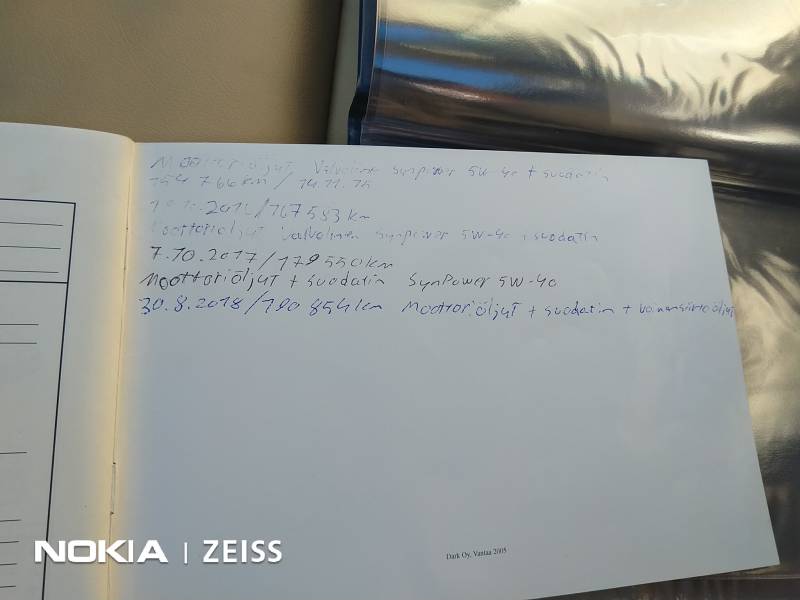 Moottoriöljyt Valvoline Synpower 5W-40 + suodatin
154 766 km / 14.11.15
2016/167 583 km
Moottoriöljyt Valvoline Synpower 5W-40 + suodatin
7.10.2017/179 550km
Moottoriöljyt + suodatin SynPower 5W-40
30.8.2018/190 854km Moottoriöljyt + suodatin + voimansiirtoöljyt
Dark Oy, Vantaa 2005
NOKIA | ZEISS